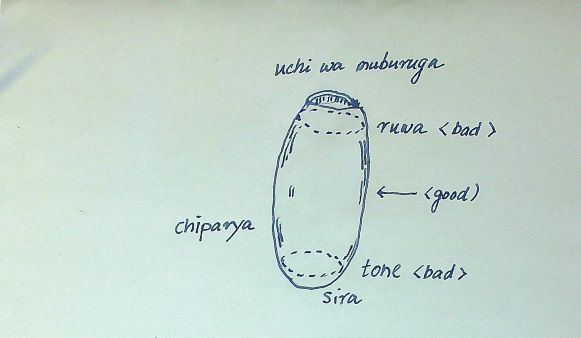 uchi wa muburuga
ruwa <bad>
<good)
chiparya
tone <bad>
sira